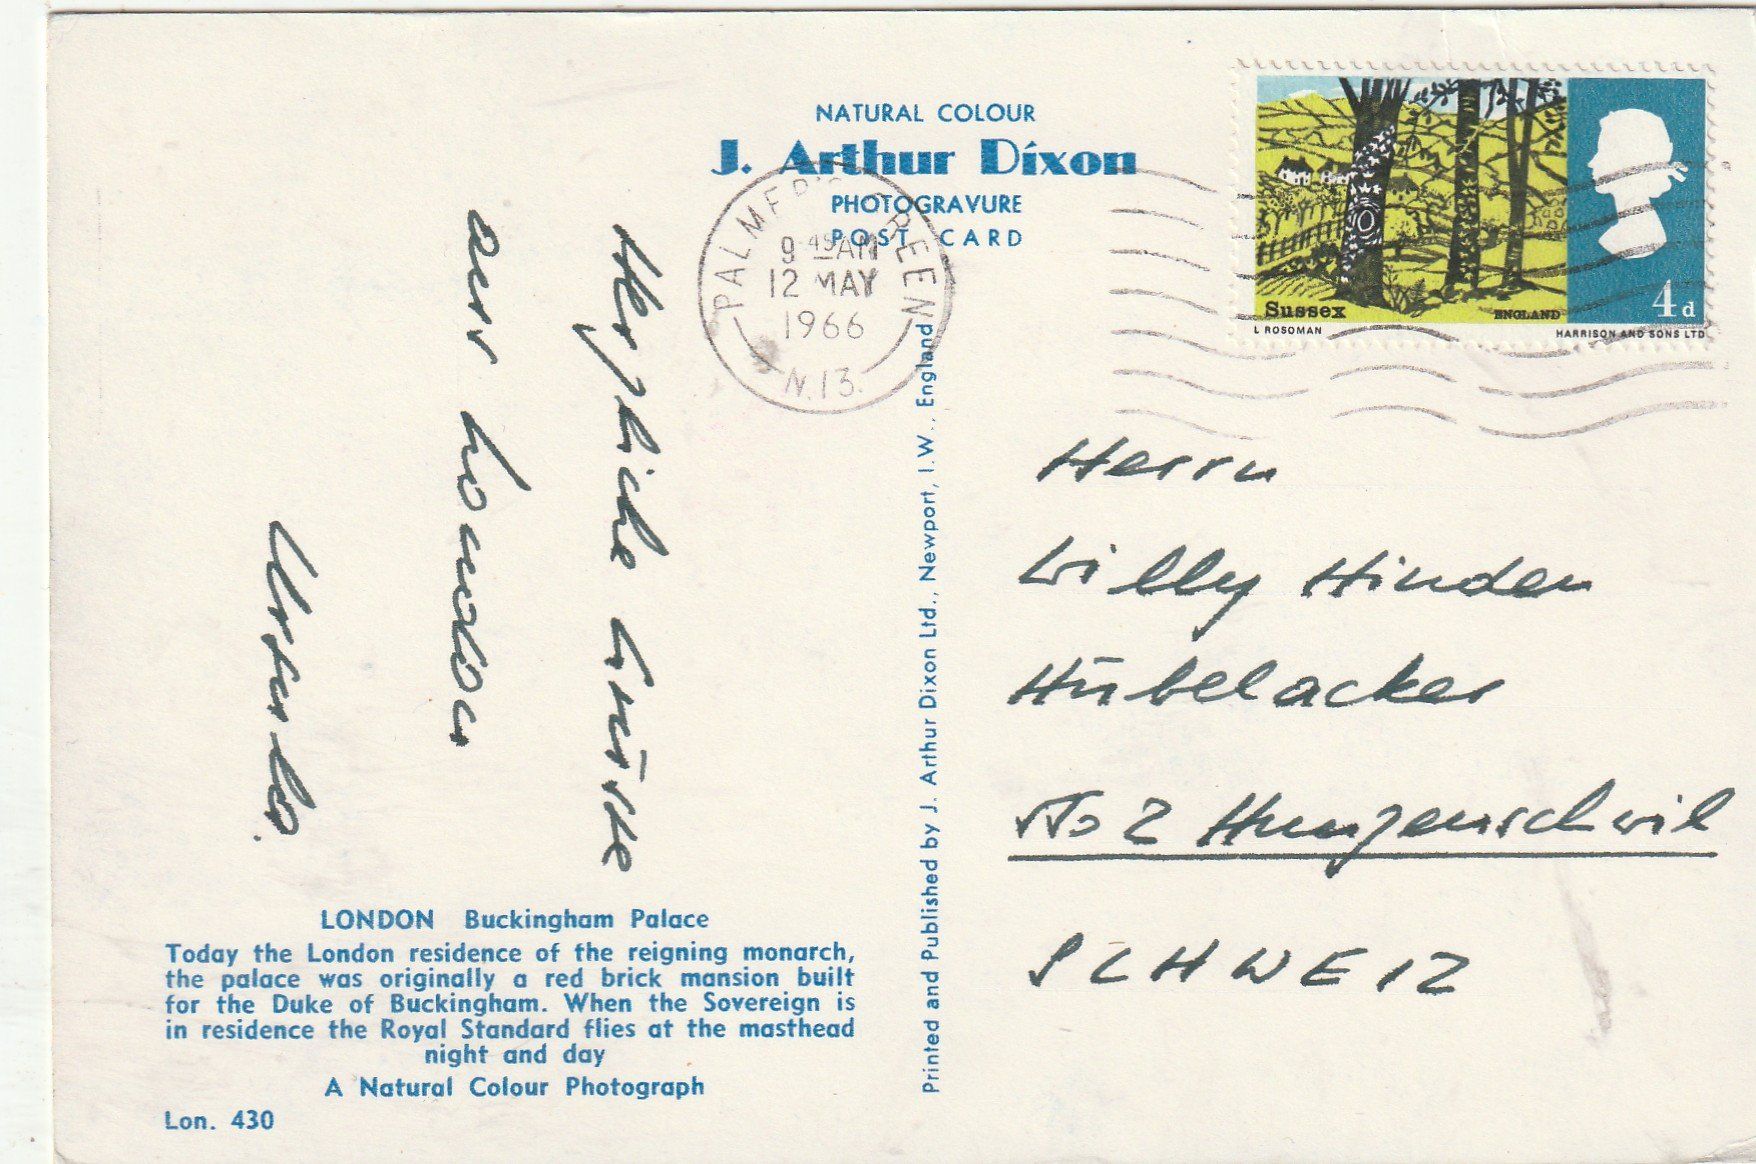 NATURAL COLOUR
J. Arthur Dixon
PHOTOGRAVURE
POST CARD
PALMER'S GREEN
9-45 AM
12 MAY
1966
N.13.
Sussex
ENGLAND
4d
L ROSOMAN
HARRISON AND SONS LTD
Herzliche Grüsse
aus London
Ursula.
Herrn
Willy Hinden
Hübelacker
Hunzenschwil
SCHWEIZ
Printed and Published by J. Arthur Dixon Ltd., Newport, I.W., England
LONDON Buckingham Palace
Today the London residence of the reigning monarch,
the palace was originally a red brick mansion built
for the Duke of Buckingham. When the Sovereign is
in residence the Royal Standard flies at the masthead
night and day
A Natural Colour Photograph
Lon. 430